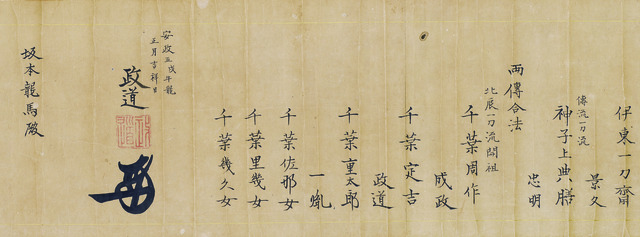 伊東一刀齋
景久
傳流一刀流
神子上典膳
忠明
両傳合法
北辰一刀流開祖
千葉周作
成政
千葉定吉
政道
千葉重太郎
一胤
千葉佐那女
千葉里幾女
千葉幾久女
安政五戊午龍
正月吉祥日
政道
坂本龍馬殿